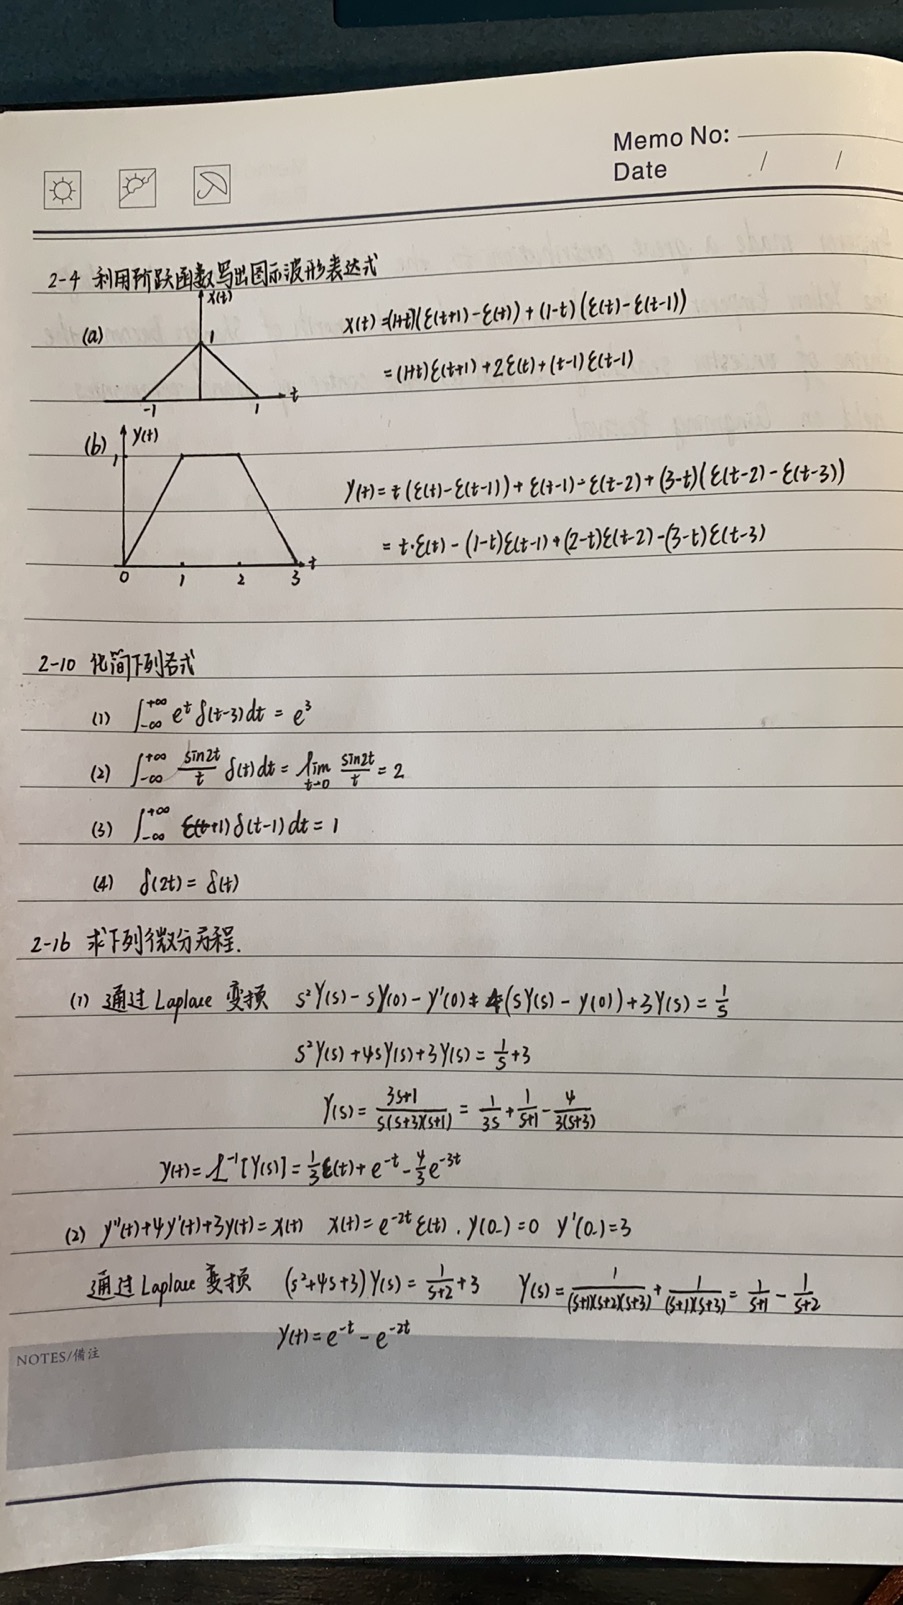 Memo No:
Date / /
2-4 利用阶跃函数写出图示波形表达式
(a) x(t) 1 -1 1 t
x(t)=(1+t)(ε(t+1)-ε(t))+(1-t)(ε(t)-ε(t-1))
=(1+t)ε(t+1)+2ε(t)+(t-1)ε(t-1)
(b) y(t) 1 0 1 2 3 t
y(t)=t(ε(t)-ε(t-1))+ε(t-1)-ε(t-2)+(3-t)(ε(t-2)-ε(t-3))
=t·ε(t)-(1-t)ε(t-1)+(2-t)ε(t-2)-(3-t)ε(t-3)
2-10 化简下列各式
(1) ∫_{-∞}^{+∞} e^t δ(t-3)dt=e^3
(2) ∫_{-∞}^{+∞} \frac{sin2t}{t} δ(t)dt=lim_{t→0} \frac{sin2t}{t}=2
(3) ∫_{-∞}^{+∞} ε(t+1)δ(t-1)dt=1
(4) δ(2t)=δ(t)
2-16 求下列微分方程.
(1) 通过Laplace变换 s²Y(s)-sy(0)-y'(0)+4(sY(s)-y(0))+3Y(s)=\frac{1}{s}
s²Y(s)+4sY(s)+3Y(s)=\frac{1}{s}+3
Y(s)=\frac{3s+1}{s(s+3)(s+1)}=\frac{1}{3s}+\frac{1}{s+1}-\frac{4}{3(s+3)}
y(t)=L^{-1}[Y(s)]=\frac{1}{3}ε(t)+e^{-t}-\frac{4}{3}e^{-3t}
(2) y''(t)+4y'(t)+3y(t)=x(t) x(t)=e^{-2t}ε(t), y(0_-)=0 y'(0_-)=3
通过Laplace变换 (s²+4s+3)Y(s)=\frac{1}{s+2}+3 Y(s)=\frac{1}{(s+1)(s+2)(s+3)}+\frac{1}{(s+1)(s+3)}=\frac{1}{s+1}-\frac{1}{s+2}
y(t)=e^{-t}-e^{-2t}
NOTES/備注